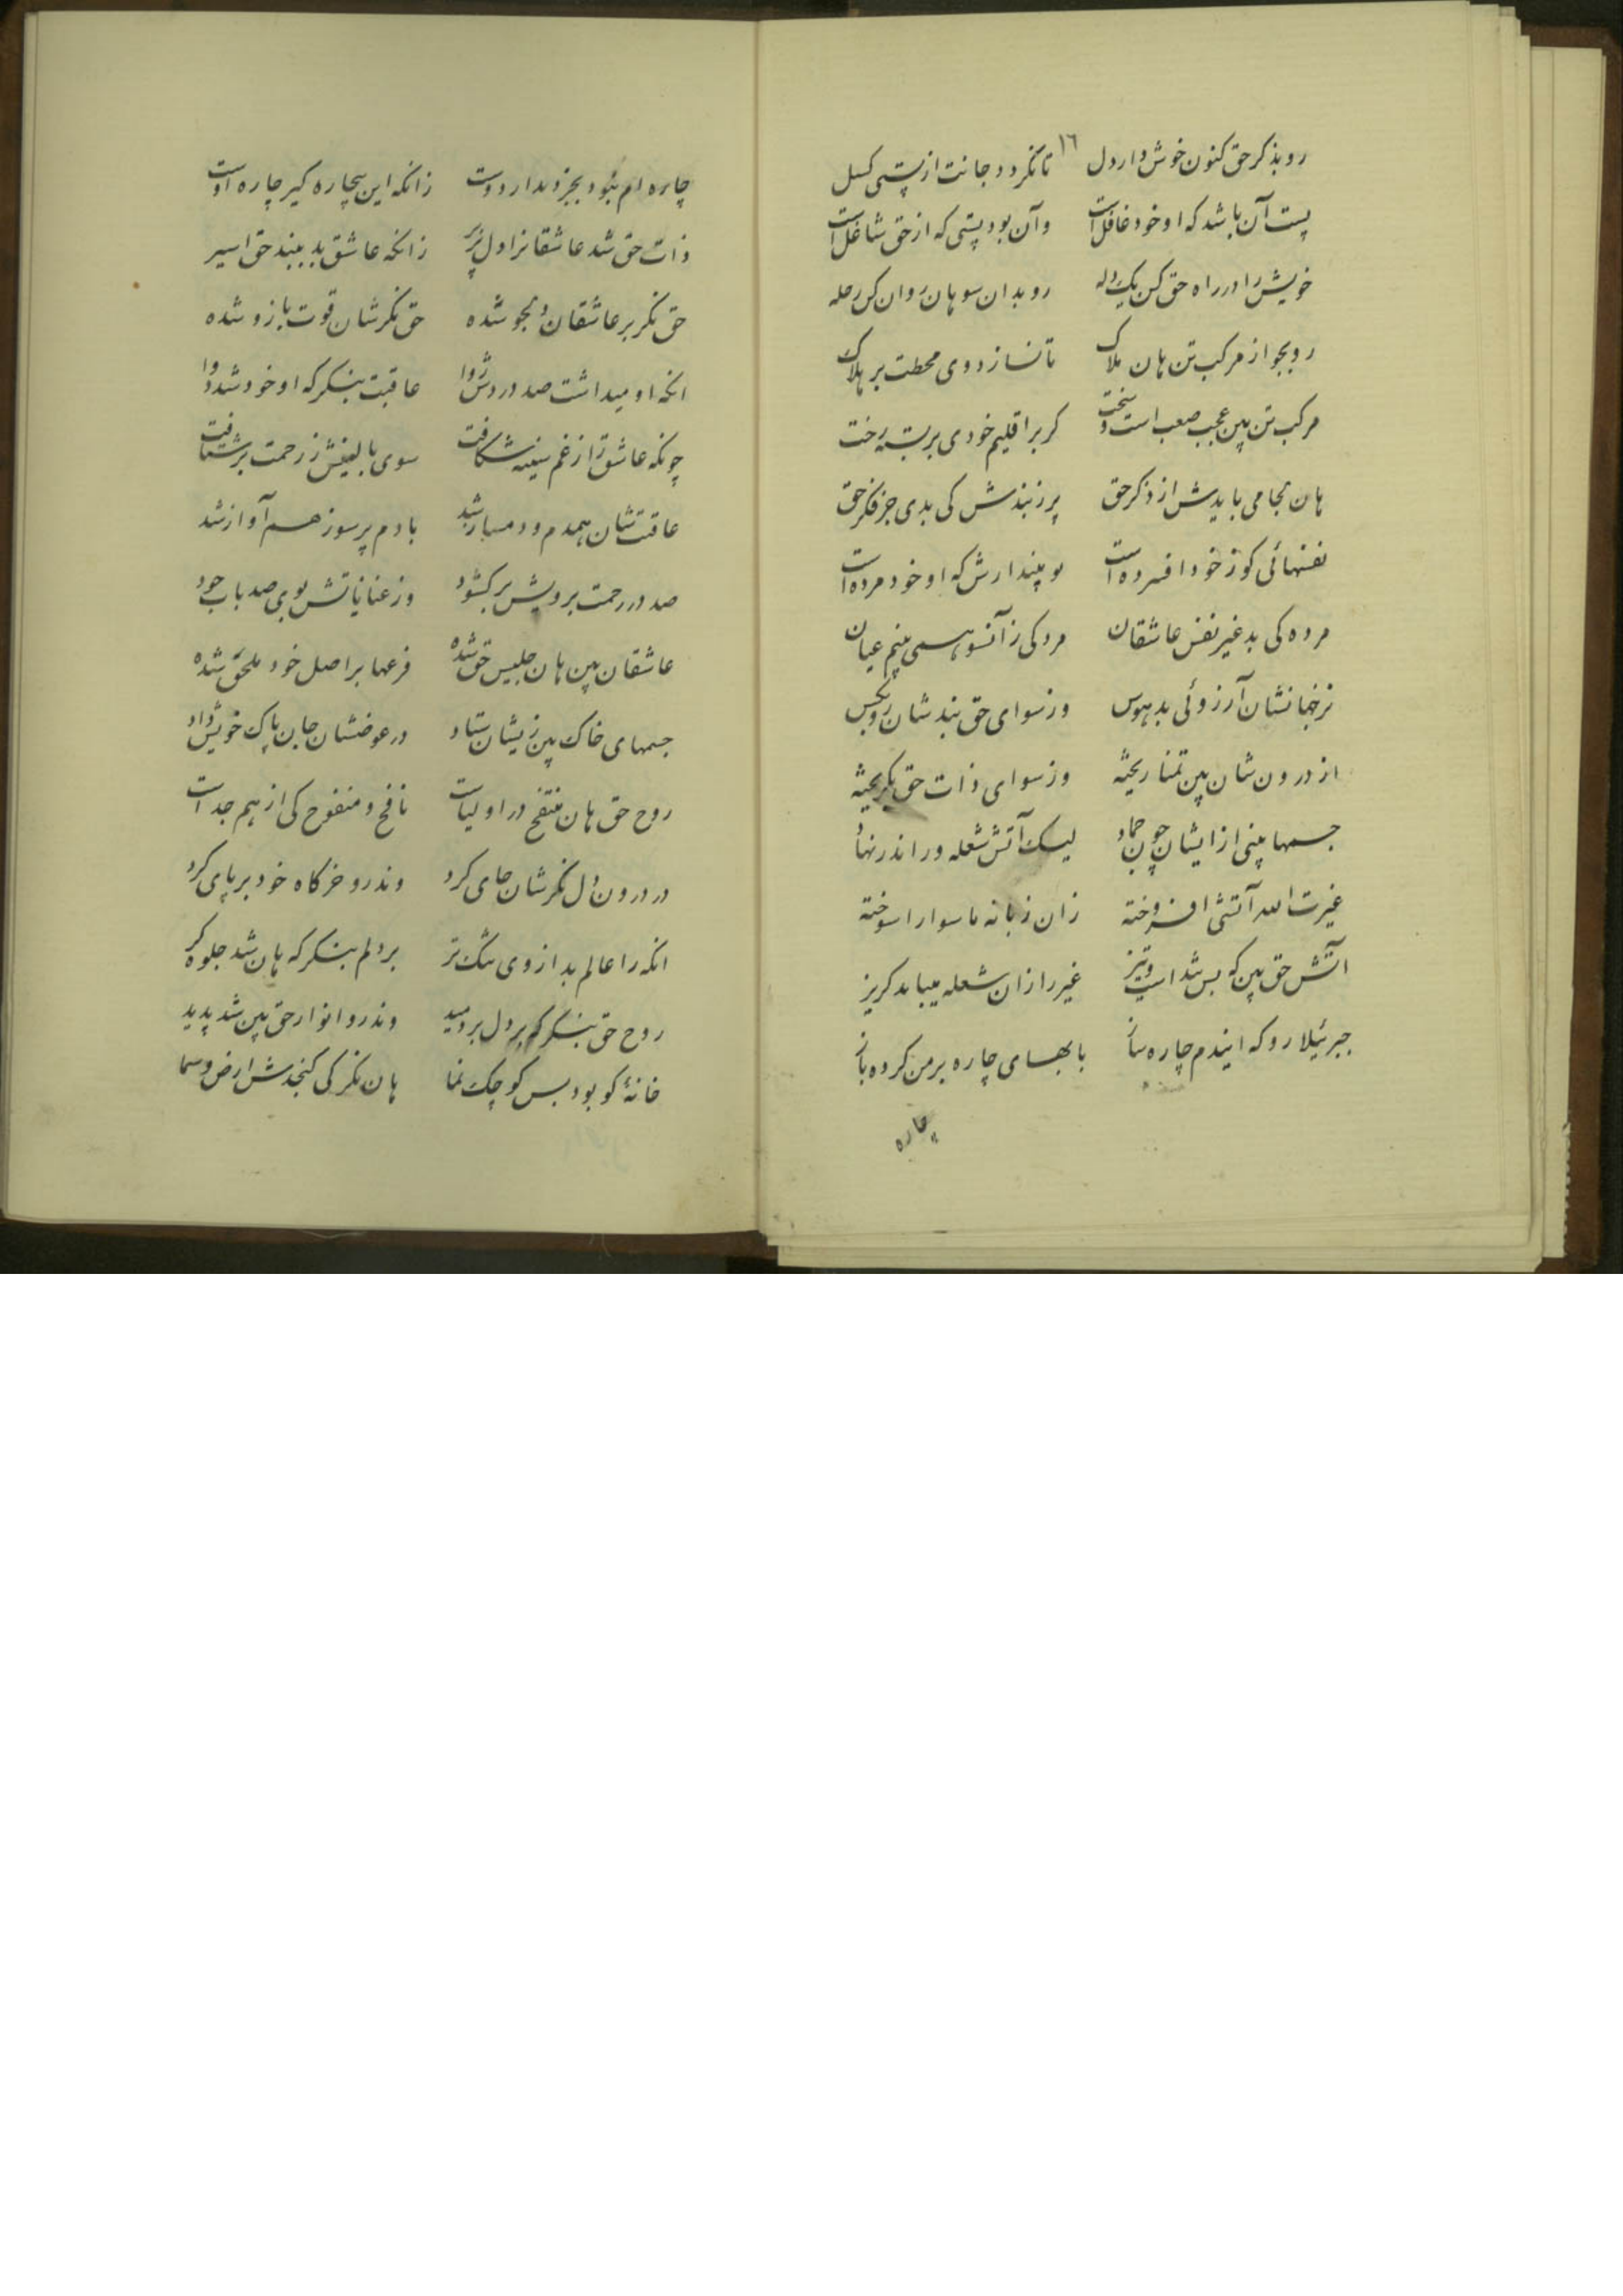 ١٦
رو بذکر حق کنون خوش دار دل تا نکردد جانت از پستی کسل
پست آن باشد که او خود غافل است وآن بود پستی که از حق شاغل است
خویش را در راه حق کن یک دله رو بدان سو هان روان کن رحله
رو بجو از مرکب تن هان ملاک تا نسازد وی محطت بر هلاک
مرکب تن بین عجب صعب است و سخت کر بر اقلیم خودی بر بسته رخت
هان لجامی بایدش از ذکر حق پرزبندش کی بدی جز فکر حق
نفسهائی کو ز خود افسرده است تو پندارش که او خود مرده است
مرده کی بد غیر نفس عاشقان مردکی زآنسو همی بینم عیان
نر خدانشان آرزوئی بد هوس وز سوای حق نبدشان
از درونشان بین تمنا ریخته وز سوای ذات حق بگریخته
جسمها بینی از ایشان چون جماد لیک آتش شعله ور اندر نهاد
غیرت الله آتشی افروخته زان زبانه ماسوا را سوخته
آتش حق بین که بس شد است و تیز غیر را زان شعله میباید کریز
جبرئیلا رو که ایندم چاره ساز با بهسای چاره بر من کرده باز
چاره
چاره ام نبود بجز دیدار دوست زانکه این بیچاره کیر چاره اوست
ذات حق شد عاشقانرا دل پذیر زانکه عاشق بد ببند حق اسیر
حق نکر بر عاشقان دلجو شده حق نکرشان قوت بازو شده
انکه او میداشت صد دردش روا عاقبت بنکر که او خود شد دوا
چونکه عاشق را ز غم سینه شکافت سوی بالینش ز رحمت بر شتافت
عاقبتشان همدم و دمساز شد با دم پر سوز هم آواز شد
صد در رحمت برویش بر کشود وز عنایاتش بوی صد باب جود
عاشقان بین هان جلیس حق شده فرعها بر اصل خود ملحق شده
جسمهای خاک بین زیشان ستاد در عوضشان جان پاک خویش داد
روح حق هان منتفخ در اولیاست نافخ و منفوخ کی از هم جداست
در درون دل نکرشان جای کرد وندرو خرکاه خود بر پای کرد
انکه را عالم بد از وی تنک تر بر دلم بنکر که هان شد جلوه کر
روح حق بنکر که بر دل بر دمید وندرو انوار حق بین شد پدید
خانۀ کو بود بس کوچک نما هان نکر کی کنجدش ارض و سما